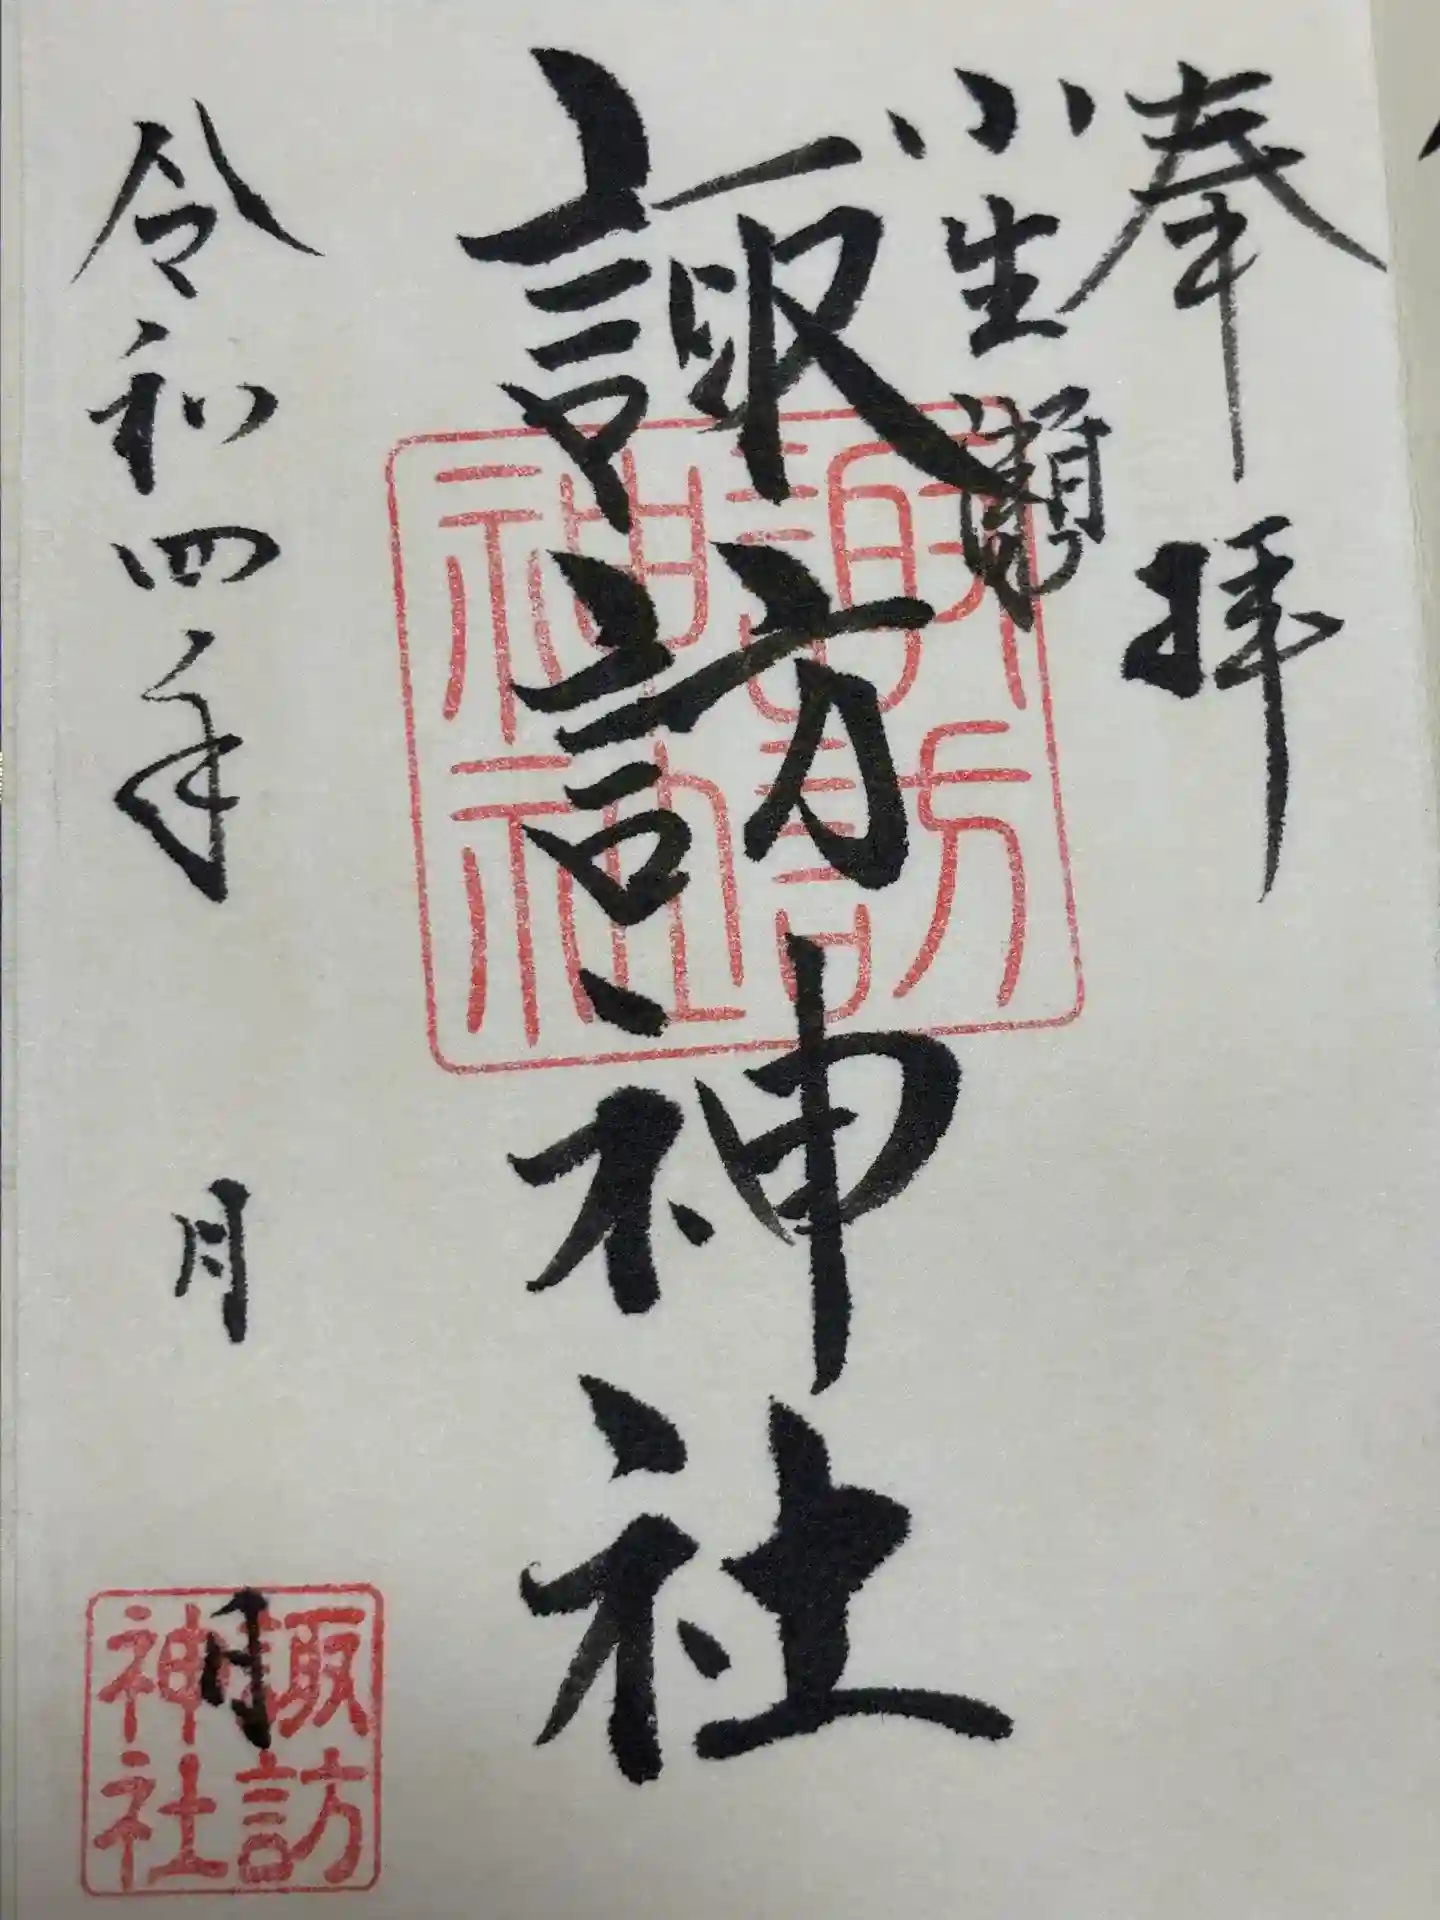 奉拝
小生瀬
諏訪神社
令和四年 月 日
諏訪
神社
諏訪
神社